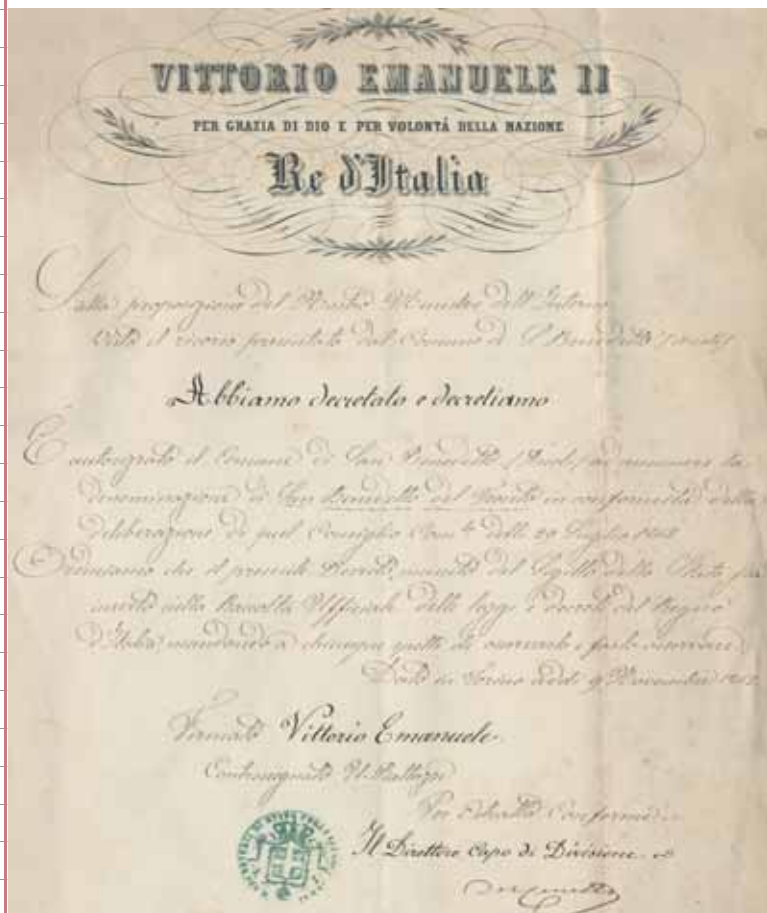 VITTORIO EMANUELE II
PER GRAZIA DI DIO E PER VOLONTÁ DELLA NAZIONE
Re d'Italia
Sulla proposizione del Nostro Ministro dell'Interno
Visto il ricorso presentato dal Comune di S. Benedetto
Abbiamo decretato e decretiamo
È autorizzato il Comune di San Benedetto ad assumere la
denominazione di San Benedetto del Tronto in conformità della
deliberazione di quel Consiglio Com.le delli 20 Luglio 1862
Ordiniamo che il presente Decreto, munito del Sigillo dello Stato, sia
inserto nella Raccolta Ufficiale delle leggi e decreti del Regno
d'Italia, mandando a chiunque spetti di osservarlo e farlo osservare.
Dato in Torino addì 9 Novembre 1862
Firmato Vittorio Emanuele
Contrassegnato U. Rattazzi
Per Estratto Conforme
Il Direttore Capo di Divisione